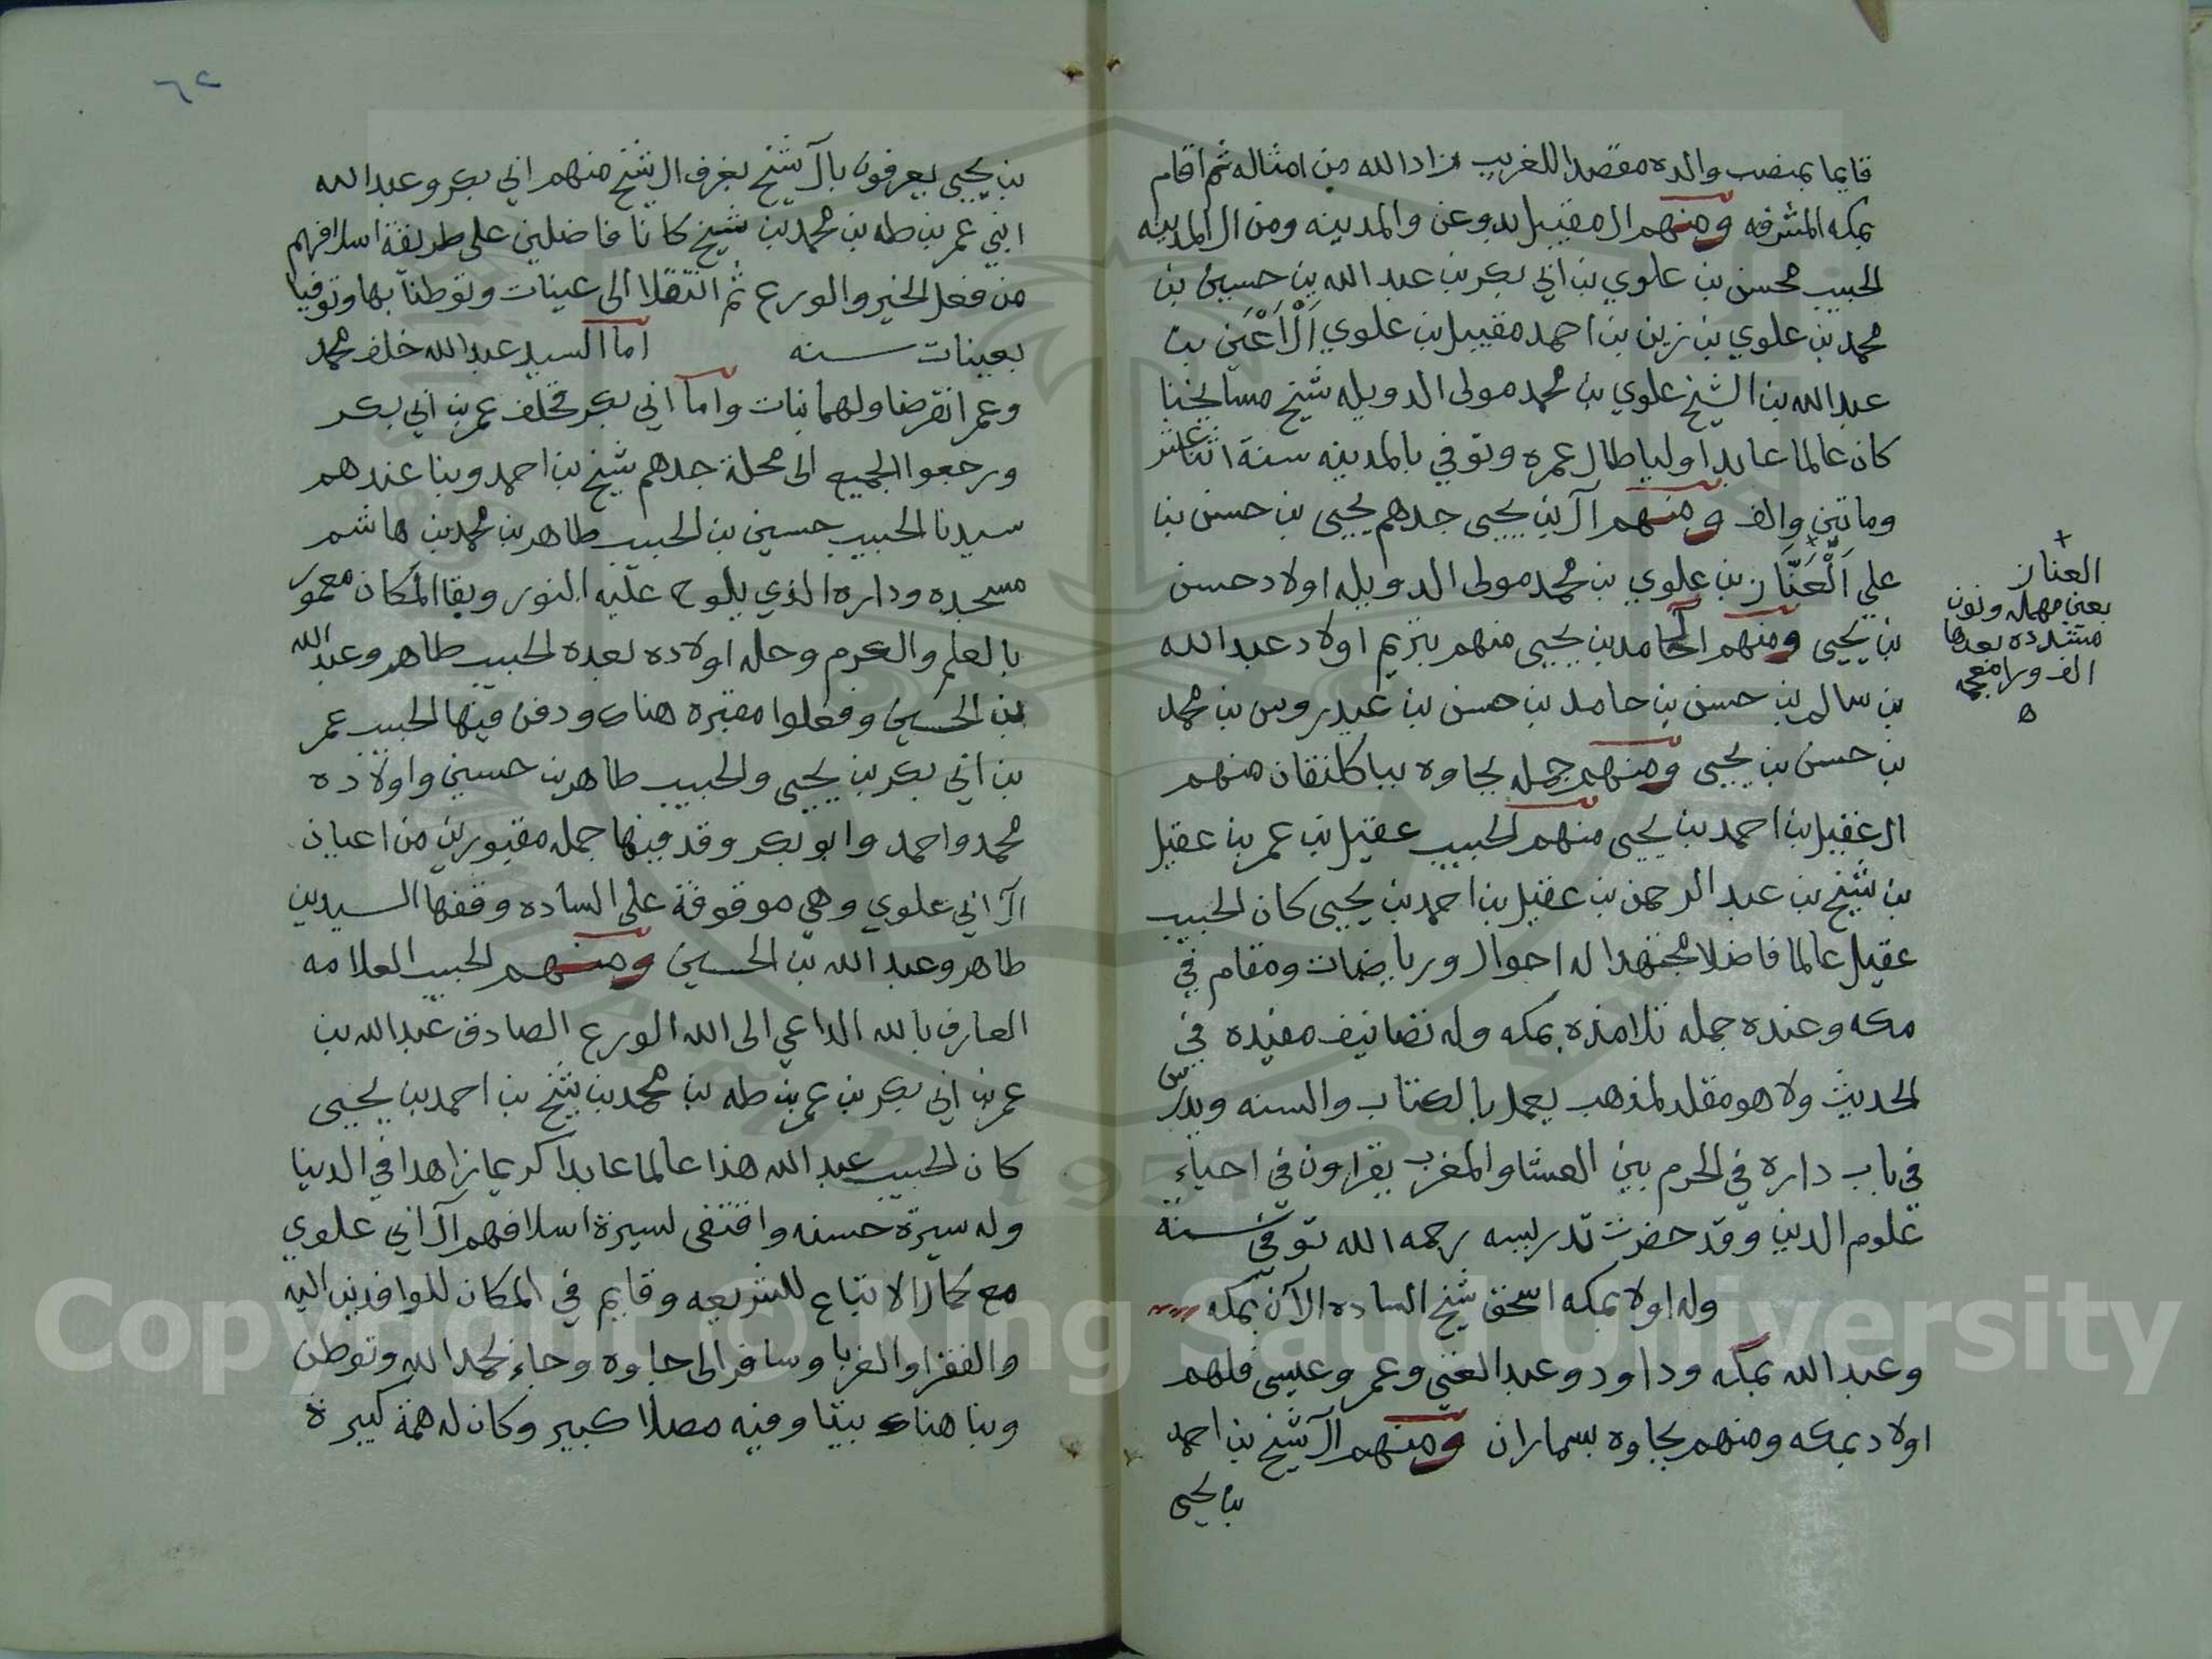 قايما بمنصب والده مقصدا للغريب زاد الله من امثاله ثم اقام
بمكه المشرفه ومنهم ال مقيبل بدوعن والمدينه ومن ال المدينه
الحبيب محسن بن علوي بن ابي بكر بن عبد الله بن حسين بن
محمد بن علوي بن زين بن احمد مقيبل بن علوي الاعين بن
عبدالله بن الشيخ علوي بن محمد مولى الدويله شيخ مسايخنا
كان عالما عابدا وليا طال عمره وتوفي بالمدينه سنة اثنا عشر
وماتين والف ومنهم آل بن يحيى جدهم يحيى بن حسن بن
علي العناز بن علوي بن محمد مولى الدويله اولاد حسن
بن يحيى ومنهم آل حامد بن يحيى منهم بتريم اولاد عبد الله
بن سالم بن حسن بن حامد بن حسن بن عيدروس بن محمد
بن حسن بن يحيى ومنهم جمله بجاوه بباكلنقان منهم
ال عقيل بن احمد بن يحيى منهم الحبيب عقيل بن عمر بن عقيل
بن شيخ بن عبد الرحمن بن عقيل بن احمد بن يحيى كان الحبيب
عقيل عالما فاضلا مجتهدا له احوال ورياضات ومقام في
مكه وعنده جمله تلامذه بمكه وله تصانيف مفيده في
الحديث ولا هو مقلد لمذهب يعمل بالكتاب والسنه ويدرس
في باب داره في الحرم بين العشا والمغرب يقراون في احياء
علوم الدين وقد حضرت تدريسه رحمه الله توفي سنة
وله اولا بمكه اسحق شيخ الساده الآن بمكه
وعبد الله بمكه وداود وعبد الغني وعمر وعيسى فلهم
اولاد بمكه ومنهم بجاوه بسماران ومنهم آل شيخ بن احمد
بن يحيى
العناز
بعين مهمله ونون
مشدده بعدها
الف وزا معجمه
ه
٦٢
بن يحيى يعرفون بآل شيخ بغرف ال شيخ منهم ابي بكر وعبد الله
ابني عمر بن طه بن محمد بن شيخ كانا فاضلين على طريقة اسلافهم
من فعل الخير والورع ثم انتقلا الى عينات وتوطنا بها وتوفيا
بعينات سنه اما السيد عبد الله خلف محمد
وعمر انقرضا ولهما بنات واما ابي بكر فخلف عمر بن ابي بكر
ورجعوا الجميع الى محلة جدهم شيخ بن احمد وبنا عندهم
سيدنا الحبيب حسين بن الحبيب طاهر بن محمد بن هاشم
مسجده وداره الذي يلوح عليه النور وبقا المكان معمور
بالعلم والكرم وحله اولاده بعده الحبيب طاهر وعبد الله
بن الحسين وفعلوا مقبره هناك ودفن فيها الحبيب عمر
بن ابي بكر بن يحيى والحبيب طاهر بن حسين واولاده
محمد واحمد وابو بكر وقد فيها جمله مقبورين من اعيان
آل ابي علوي وهي موقوفة على الساده وقفها السيدين
طاهر وعبد الله بن الحسين ومنهم الحبيب العلامه
العارف بالله الداعي الى الله الورع الصادق عبد الله بن
عمر بن ابي بكر بن عمر بن طه بن محمد بن شيخ بن احمد بن يحيى
كان الحبيب عبد الله هذا عالما عابدا كريما زاهدا في الدنيا
وله سيرة حسنه واقتفى لسيرة اسلافهم آل ابي علوي
مع كمال الاتباع للشريعه وقايم في المكان للوافدين اليه
والفقرا والغربا وسافر الى جاوه وجاء لحمد الله وتوطن
وبنا هناك بيتا وفيه مصلا كبير وكان له همة كبيرة
Copyright © King Saud University
1957